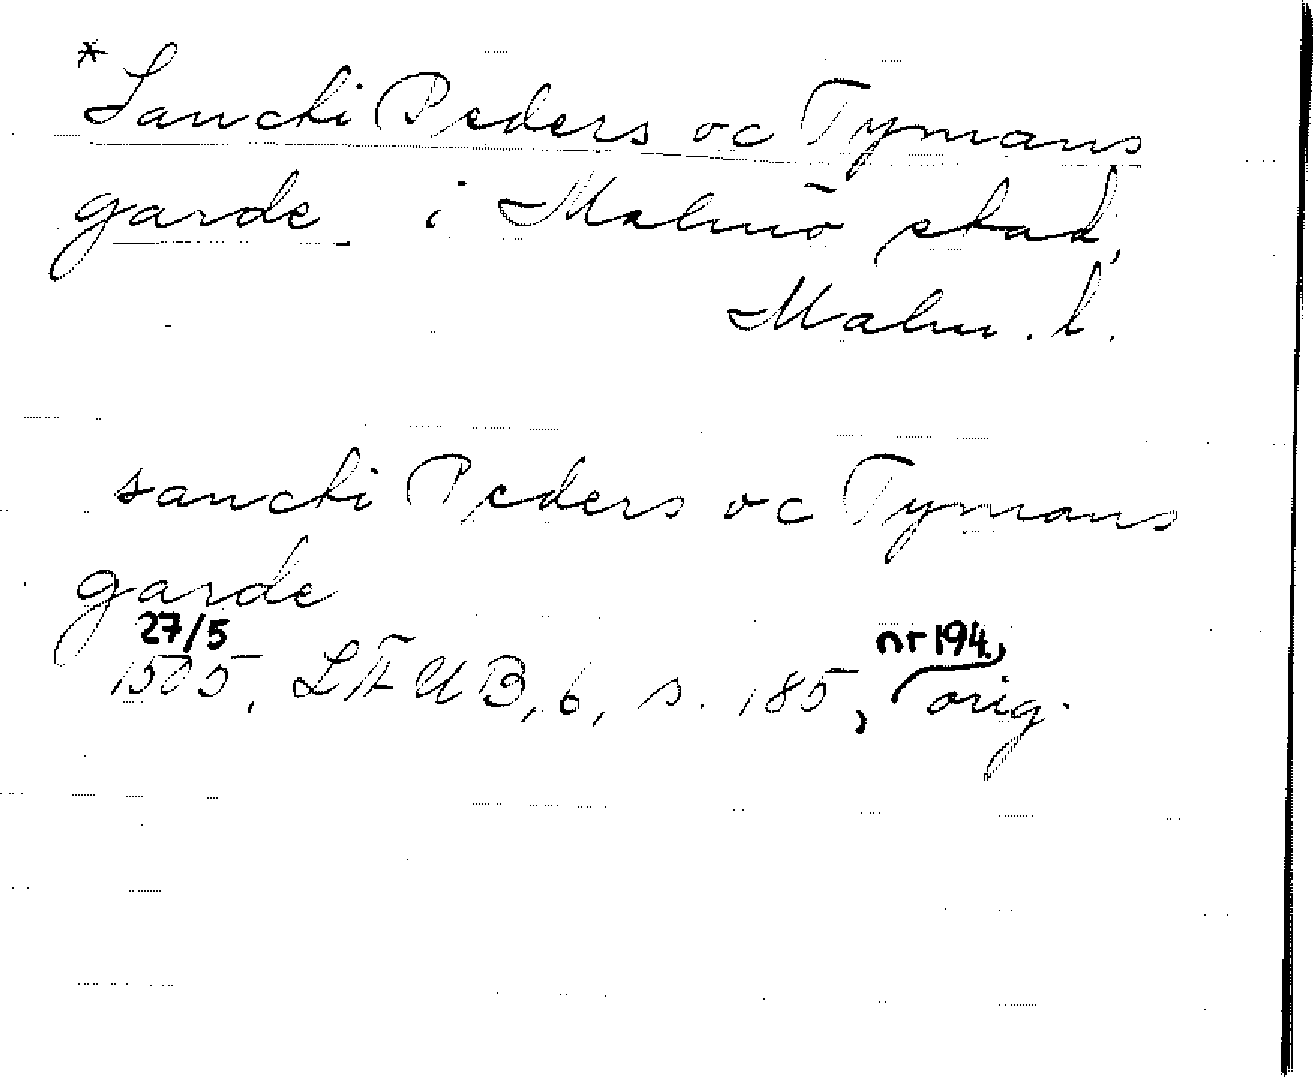 * Sancti Peders oc Tymans
garde i Malmö stad,
Malm. l.
sancti Peders oc Tymans
garde
27/5 nr 194,
1505, LÄUB, 6, s. 185, orig.